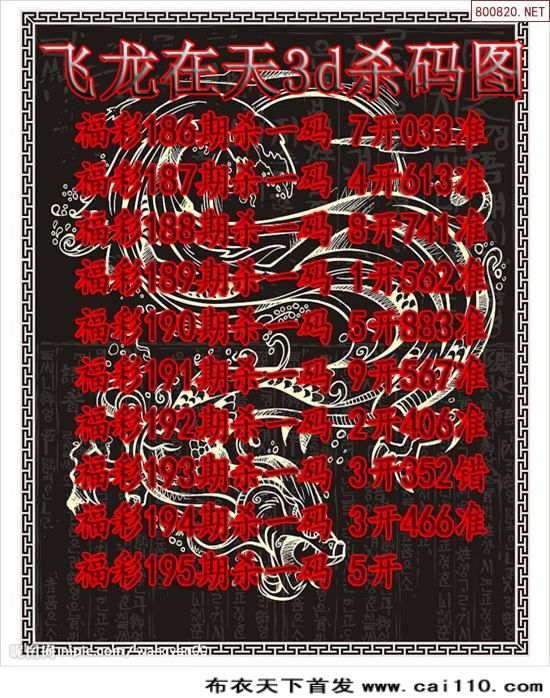 800820.NET
飞龙在天3d杀码图
福彩186期杀一码 7开033准
福彩187期杀一码 4开613准
福彩188期杀一码 8开741准
福彩189期杀一码 1开562准
福彩190期杀一码 5开883准
福彩191期杀一码 9开567准
福彩192期杀一码 2开406准
福彩193期杀一码 3开352错
福彩194期杀一码 3开466准
福彩195期杀一码 5开
布衣天下首发 www.cai110.com